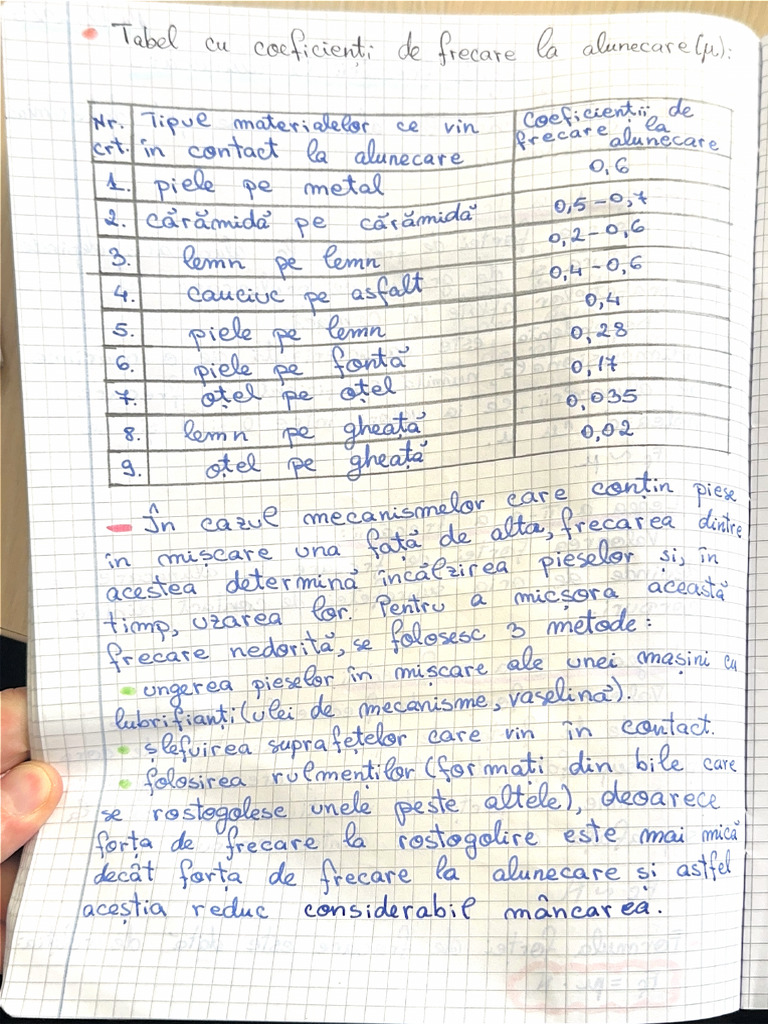 Tabel cu coeficienți de frecare la alunecare (μ):
Nr. crt. | Tipul materialelor ce vin în contact la alunecare | Coeficienții de frecare la alunecare
1. piele pe metal 0,6
2. cărămidă pe cărămidă 0,5-0,7
3. lemn pe lemn 0,2-0,6
4. cauciuc pe asfalt 0,4-0,6
5. piele pe lemn 0,4
6. piele pe fontă 0,28
7. oțel pe oțel 0,17
8. lemn pe gheață 0,035
9. oțel pe gheață 0,02
În cazul mecanismelor care conțin piese
în mișcare una față de alta, frecarea dintre
acestea determină încălzirea pieselor și, în
timp, uzarea lor. Pentru a micșora această
frecare nedorită, se folosesc 3 metode:
• ungerea pieselor în mișcare ale unei mașini cu
lubrifianți (ulei de mecanisme, vaselină).
• șlefuirea suprafețelor care vin în contact.
• folosirea rulmenților (formați din bile care
se rostogolesc unele peste altele), deoarece
forța de frecare la rostogolire este mai mică
decât forța de frecare la alunecare și astfel
aceștia reduc considerabil mâncarea.